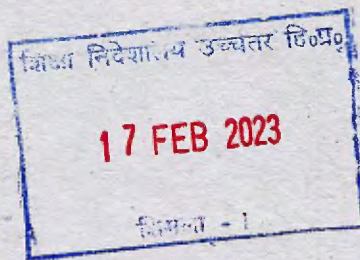 शिक्षा निदेशालय उच्चतर हि०प्र०
17 FEB 2023
शिमला - 1